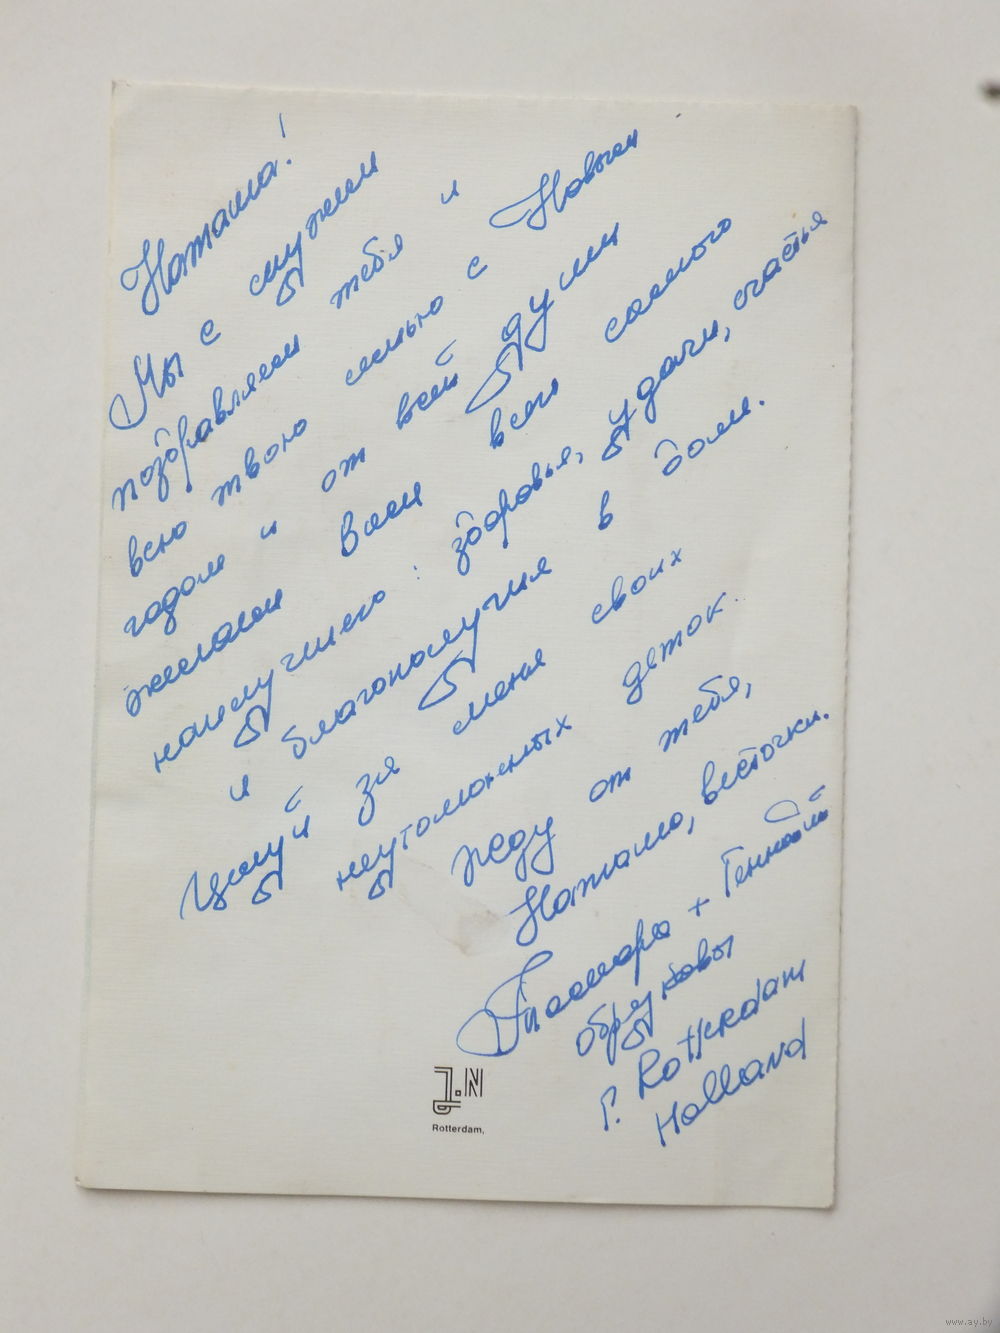 Наташа!
Мы с мужем
поздравляем тебя и
всю твою семью с Новым
годом и от всей души
желаем Вам всего самого
наилучшего: здоровья, удачи, счастья
и благополучия в доме.
Целуй за меня своих
неугомонных деток.
Жду от тебя,
Наташа, весточки.
Тамара + Геннадий
г. Rotterdam
Holland
J.N
Rotterdam,
www.ay.by